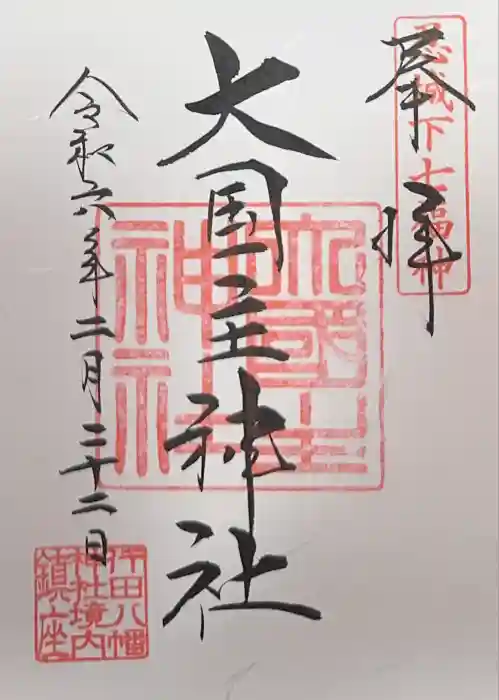 奉拝
忍城下七福神
大国主神社
大國主神社
令和六年二月二十二日
行田八幡
神社境内
鎮座